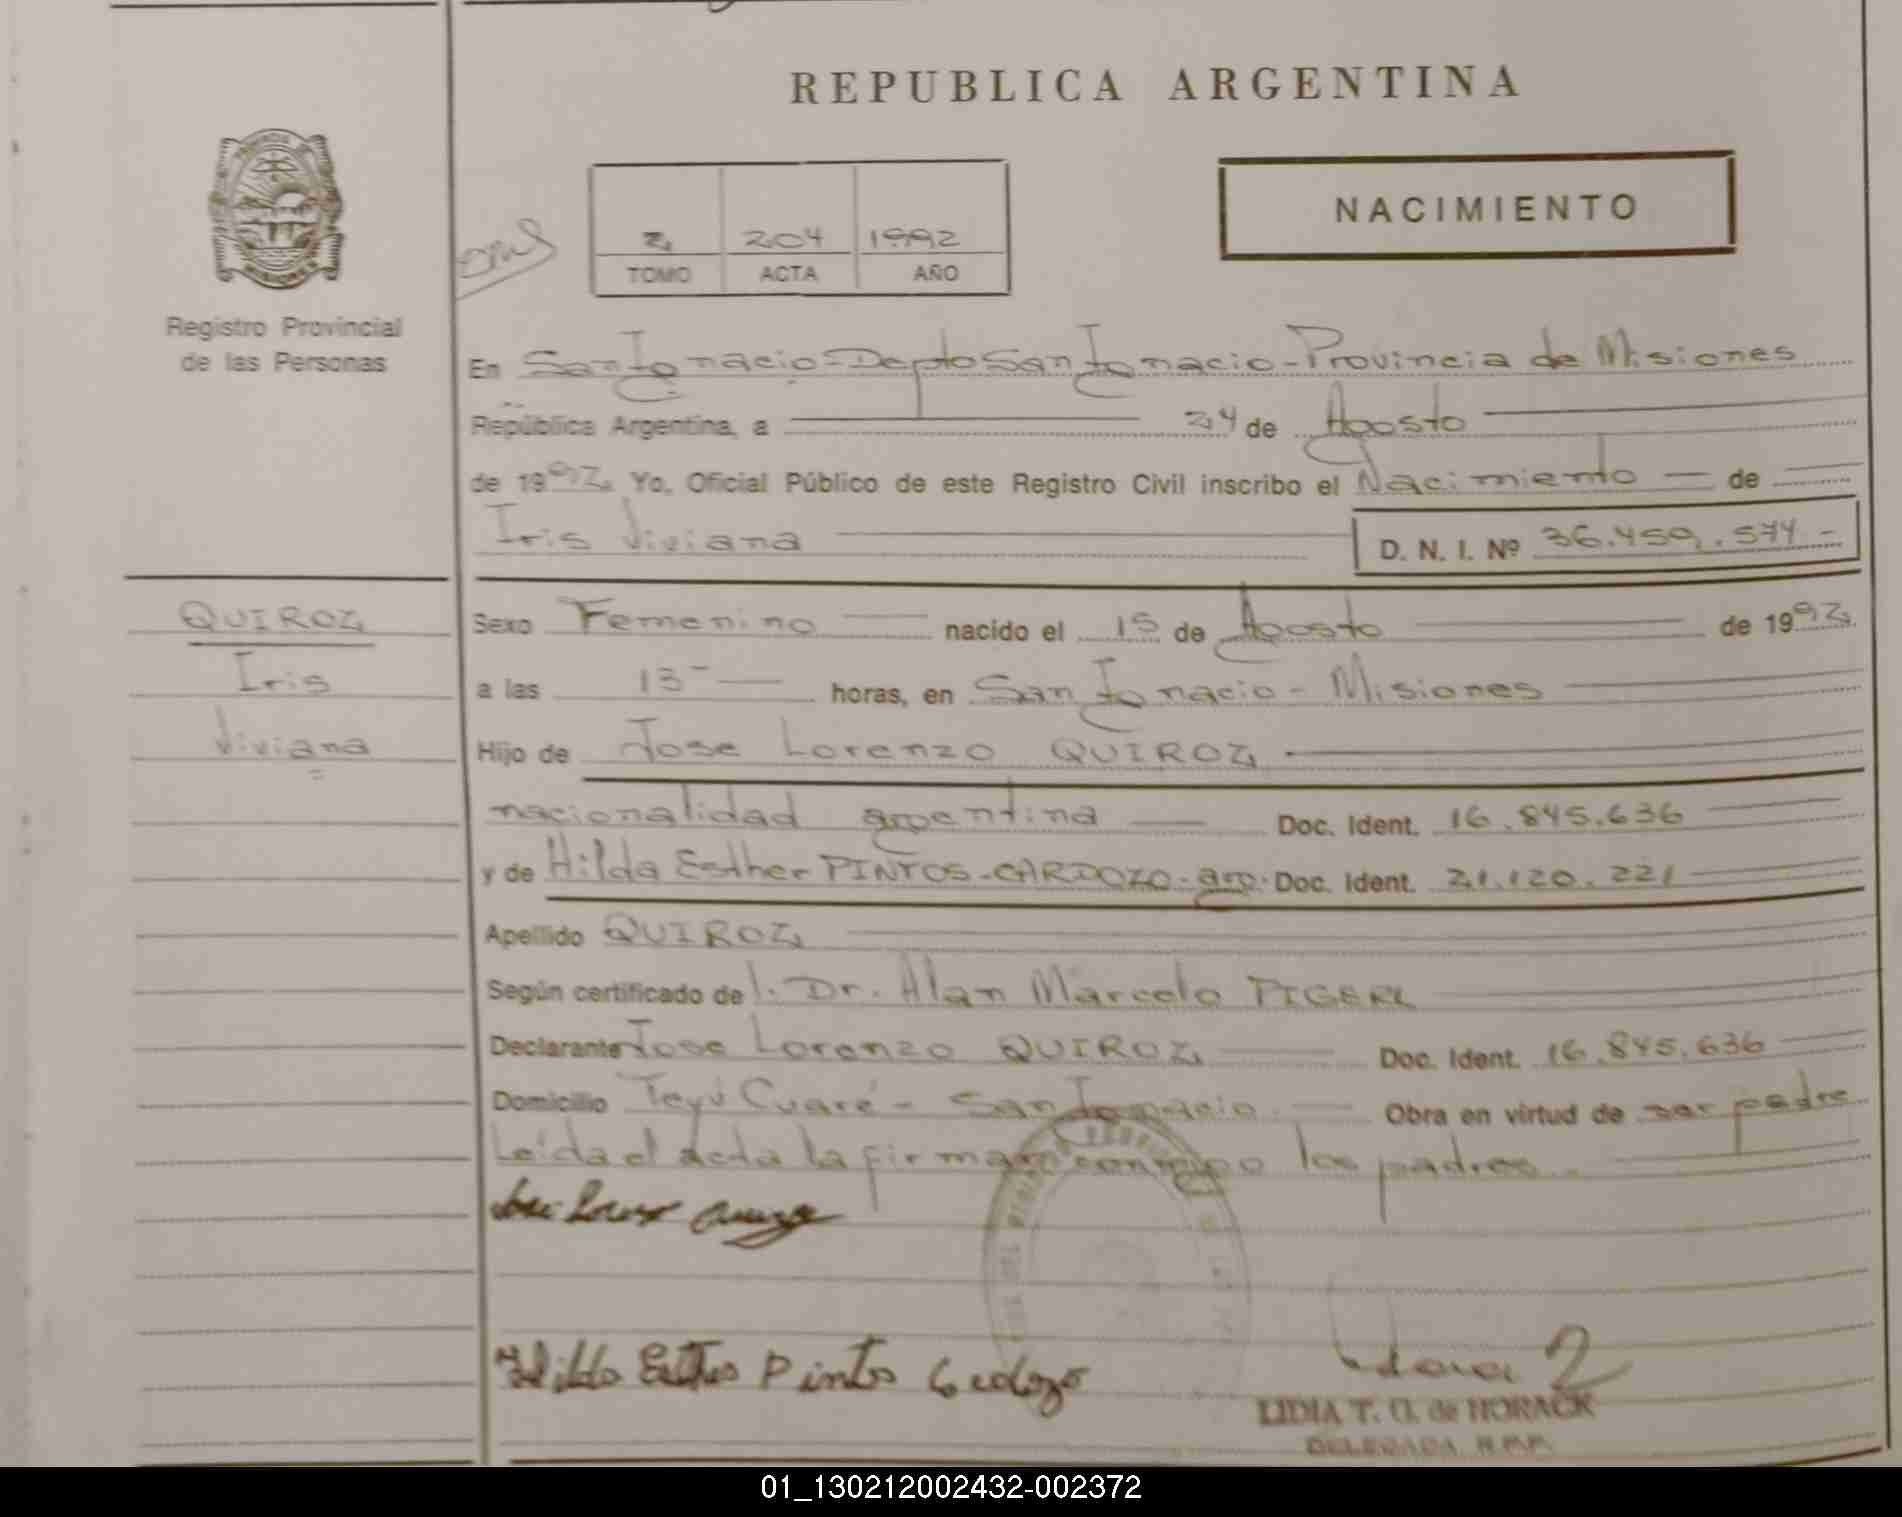 REPUBLICA ARGENTINA
NACIMIENTO
2 204 1992
TOMO ACTA AÑO
Registro Provincial
de las Personas
En San Ignacio - Depto San Ignacio - Provincia de Misiones
República Argentina, a 24 de Agosto
de 1992 Yo, Oficial Público de este Registro Civil inscribo el Nacimiento de
Iris Viviana D. N. I. Nº 36.459.574 -
QUIROZ
Iris
Viviana
Sexo Femenino nacido el 15 de Agosto de 1992
a las 13 horas, en San Ignacio - Misiones
Hijo de Jose Lorenzo QUIROZ
nacionalidad argentina Doc. Ident. 16.845.636
y de Hilda Esther PINTOS - CARDOZO - arg. Doc. Ident. 21.120.221
Apellido QUIROZ
Según certificado de l. Dr. Alan Marcelo PIGERL
Declarante Jose Lorenzo QUIROZ Doc. Ident. 16.845.636
Domicilio Teyú Cuaré - San Ignacio Obra en virtud de ser padre
Leída el acta la firman conmigo los padres
Hilda Esther Pintos Cardozo
LIDIA T. G. de HORACK
DELEGADA R.P.P.
01_130212002432-002372